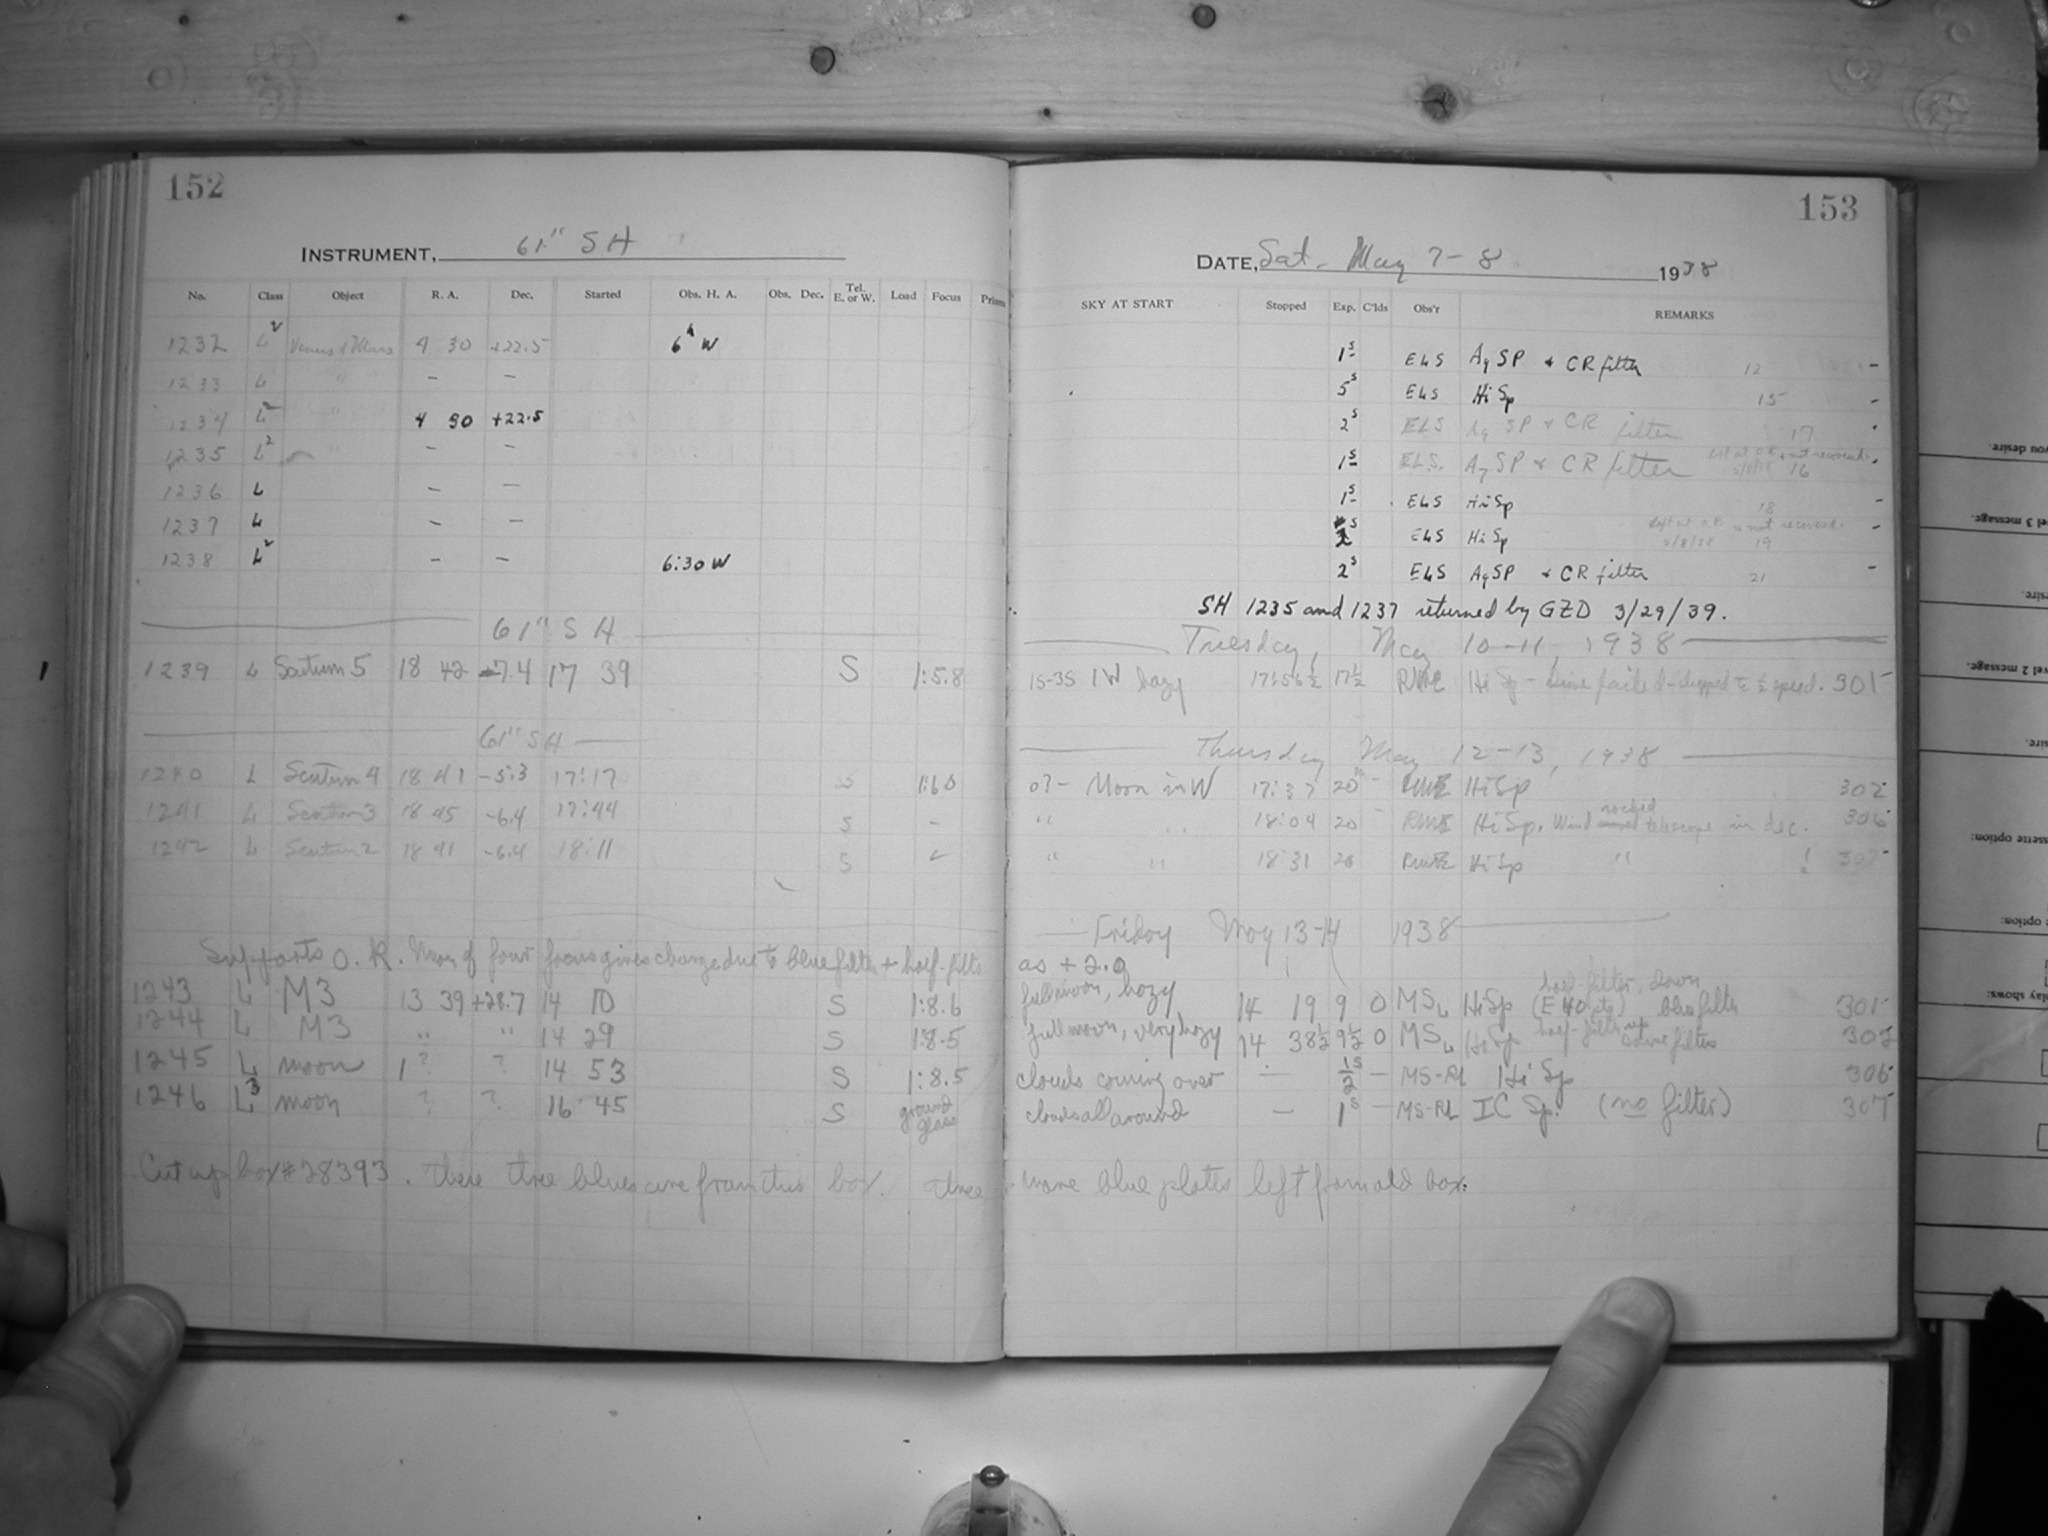 152
INSTRUMENT, 61" SH
No. Class Object R. A. Dec. Started Obs. H. A. Obs. Dec. Tel. E. or W. Load Focus Prism
1232 L2 Venus & Mars 4 30 +22.5 6h W
1233 L " - -
1234 L2 " 4 30 +22.5
1235 L2 " - -
1236 L - -
1237 L - -
1238 L2 - - 6:30 W
61" SH
1239 L Scutum 5 18 42 -7.4 17 39 S 1:5.8
61" SH
1240 L Scutum 4 18 41 -5.3 17:17 S 1:60
1241 L Scutum 3 18 45 -6.4 17:44 S -
1242 L Scutum 2 18 41 -6.4 18:11 S
Supports O.K. Mean of four focus gives change due to blue filter + half-filts
1243 L M3 13 39 +28.7 14 10 S 1:8.6
1244 L M3 " " 14 29 S 1:8.5
1245 L moon 1? ? 14 53 S 1:8.5
1246 L3 moon ? ? 16 45 S ground glass
Cut up box #28393. These three blues are from this box. Three
153
DATE, Sat. May 7-8 1938
SKY AT START Stopped Exp. C'lds Obs'r REMARKS
1s ELS Ag SP & CR filter 12 -
5s ELS Hi Sp 15 -
2s ELS Ag SP & CR filter 17
1s ELS. Ag SP & CR filter Left at O.R. & not recovered. 5/8/38 16
1s ELS Hi Sp 18 -
2s ELS Hi Sp Left at O.R. & not recovered. 5/8/38 19 -
2s ELS Ag SP & CR filter 21 -
SH 1235 and 1237 returned by GZD 3/29/39.
Tuesday, May 10-11, 1938
1S-3S 1W hazy 17:56½ 17½ Hi Sp - Drive failed - dropped to ½ speed. 301
Thursday May 12-13, 1938
0?- Moon in W 17:37 20m - Hi Sp 302
" " 18:04 20 - Hi Sp. Wind rocked telescope in dec. 306
" " 18:31 20 Hi Sp " ! 307
Friday May 13-14 1938
as +2.0
full moon, hazy 14 19 9 0 MSL Hi Sp half-filter, down blue filter 301
full moon, very hazy 14 38½ 9½ 0 MSL Hi Sp half-filter up same filter 302
clouds coming over - ½s - MS-RL Hi Sp 306
clouds all around - 1s - MS-RL IC Sp. (no filter) 307
more blue plates left from old box.